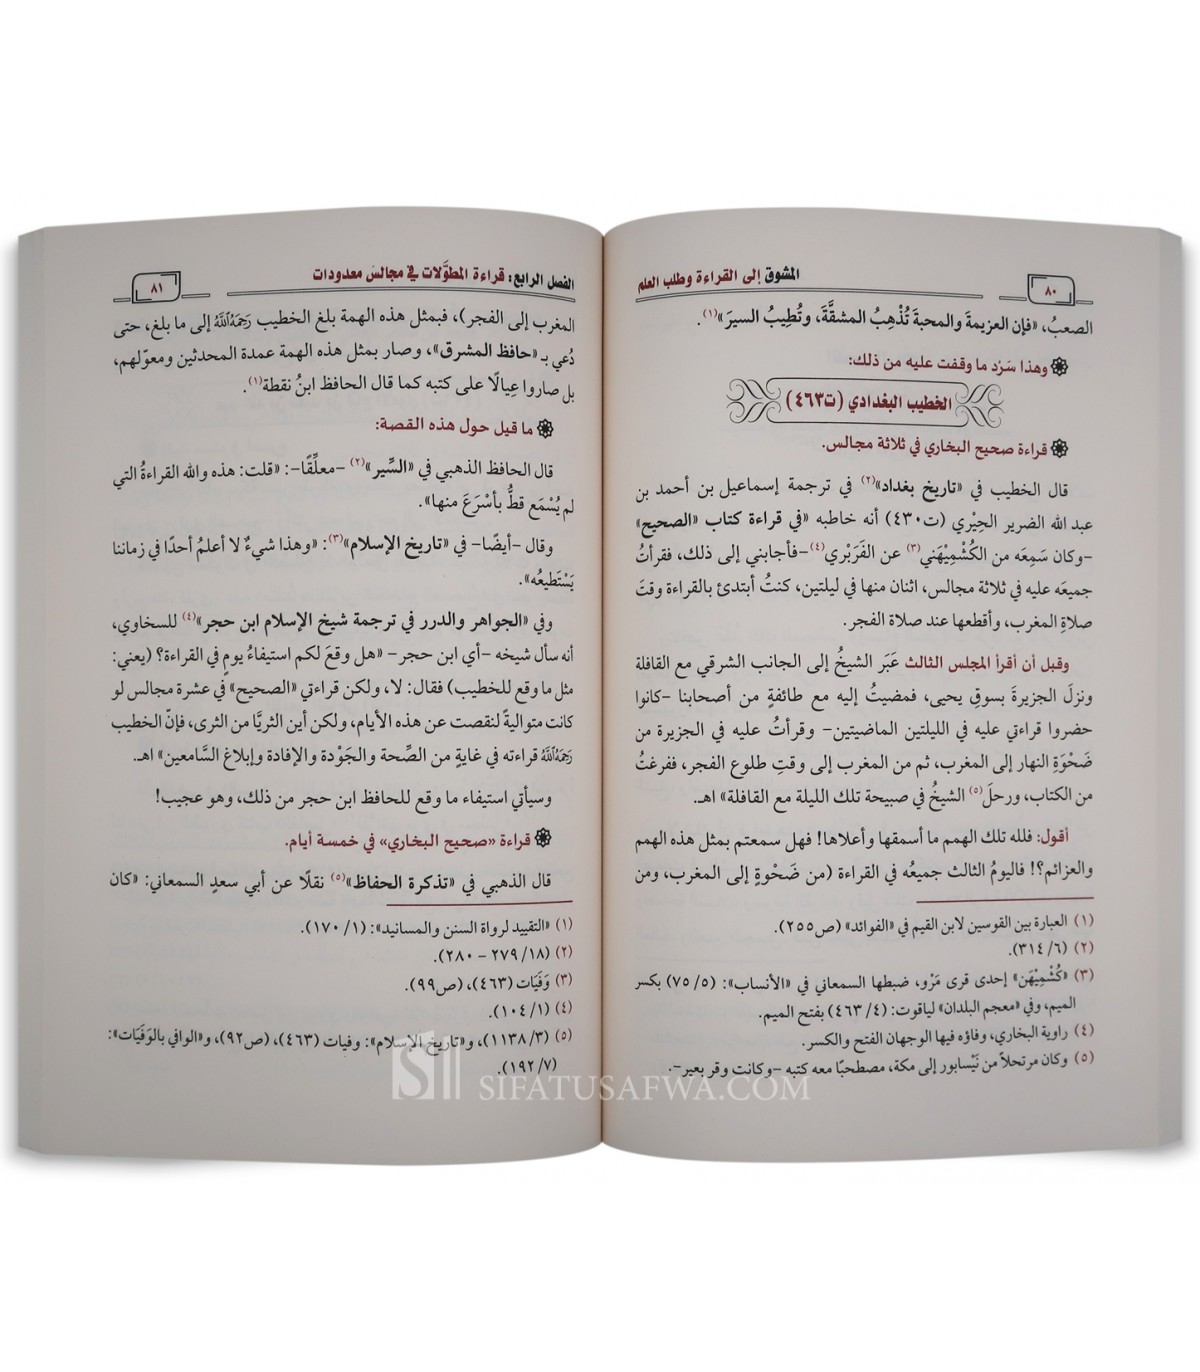 المشوق إلى القراءة وطلب العلم
٨٠
الصعبُ، «فإن العزيمة والمحبةَ تُذْهِبُ المشقَّةَ، وتُطِيبُ السيرَ»(١).
وهذا سَرْد ما وقفت عليه من ذلك:
الخطيب البغدادي (ت٤٦٣)
قراءة صحيح البخاري في ثلاثة مجالس.
قال الخطيب في «تاريخ بغداد»(٢) في ترجمة إسماعيل بن أحمد بن
عبد الله الضرير الحِيْري (ت٤٣٠) أنه خاطبه «في قراءة كتاب «الصحيح»
-وكان سَمِعَه من الكُشْمِيْهَني(٣) عن الفَرَبْري(٤)-فأجابني إلى ذلك، فقرأتُ
جميعَه عليه في ثلاثة مجالس، اثنان منها في ليلتين، كنتُ أبتدئ بالقراءة وقتَ
صلاةِ المغرب، وأقطعها عند صلاة الفجر.
وقبل أن أقرأ المجلس الثالث عَبَر الشيخُ إلى الجانب الشرقي مع القافلة
ونزلَ الجزيرةَ بسوقِ يحيى، فمضيتُ إليه مع طائفةٍ من أصحابنا -كانوا
حضروا قراءتي عليه في الليلتين الماضيتين- وقرأتُ عليه في الجزيرة من
ضَحْوَةِ النهار إلى المغرب، ثم من المغرب إلى وقتِ طلوع الفجر، ففرغتُ
من الكتاب، ورحلَ(٥) الشيخُ في صبيحة تلك الليلة مع القافلة» اهـ.
أقول: فلله تلك الهمم ما أسمقها وأعلاها! فهل سمعتم بمثل هذه الهمم
والعزائم؟! فاليومُ الثالث جميعُه في القراءة (من ضَحْوةٍ إلى المغرب، ومن
(١) العبارة بين القوسين لابن القيم في «الفوائد» (ص٢٥٥).
(٢) (٣١٤/٦).
(٣) «كُشْمِيْهَن» إحدى قرى مَرْو، ضبطها السمعاني في «الأنساب»: (٧٥/٥) بكسر
الميم، وفي «معجم البلدان» لياقوت: (٤٦٣/٤) بفتح الميم.
(٤) راوية البخاري، وفاؤه فيها الوجهان الفتح والكسر.
(٥) وكان مرتحلًا من نَيْسابور إلى مكة، مصطحبًا معه كتبه -وكانت وقر بعير-.
الفصل الرابع: قراءة المطوَّلات في مجالسَ معدودات
٨١
المغرب إلى الفجر)، فبمثل هذه الهمة بلغ الخطيب رَحِمَهُ ٱللَّهُ إلى ما بلغ، حتى
دُعي بـ «حافظ المشرق»، وصار بمثل هذه الهمة عمدة المحدثين ومعوّلهم،
بل صاروا عِيالًا على كتبه كما قال الحافظ ابنُ نقطة(١).
ما قيل حول هذه القصة:
قال الحافظ الذهبي في «السِّير»(٢) -معلِّقًا-: «قلت: هذه والله القراءةُ التي
لم يُسْمَع قطُّ بأسْرَعَ منها».
وقال -أيضًا- في «تاريخ الإسلام»(٣): «وهذا شيءٌ لا أعلمُ أحدًا في زماننا
يَسْتَطيعُه».
وفي «الجواهر والدرر في ترجمة شيخ الإسلام ابن حجر»(٤) للسخاوي،
أنه سأل شيخه -أي ابن حجر- «هل وقعَ لكم استيفاءُ يومٍ في القراءة؟ (يعني:
مثل ما وقع للخطيب) فقال: لا، ولكن قراءتي «الصحيح» في عشرة مجالس لو
كانت متواليةً لنقصت عن هذه الأيام، ولكن أين الثريَّا من الثرى، فإنّ الخطيب
رَحِمَهُ ٱللَّهُ قراءته في غايةٍ من الصِّحة والجَوْدة والإفادة وإبلاغ السَّامعين» اهـ.
وسيأتي استيفاء ما وقع للحافظ ابن حجر من ذلك، وهو عجيب!
قراءة «صحيح البخاري» في خمسة أيام.
قال الذهبي في «تذكرة الحفاظ»(٥) نقلًا عن أبي سعدٍ السمعاني: «كان
(١) «التقييد لرواة السنن والمسانيد»: (١٧٠/١).
(٢) (٢٧٩/١٨ – ٢٨٠).
(٣) وَفَيَات (٤٦٣)، (ص٩٩).
(٤) (١٠٤/١).
(٥) (١١٣٨/٣)، و«تاريخ الإسلام»: وفيات (٤٦٣)، (ص٩٢)، و«الوافي بالوَفَيات»:
(١٩٢/٧).
SIFATUSAFWA.COM